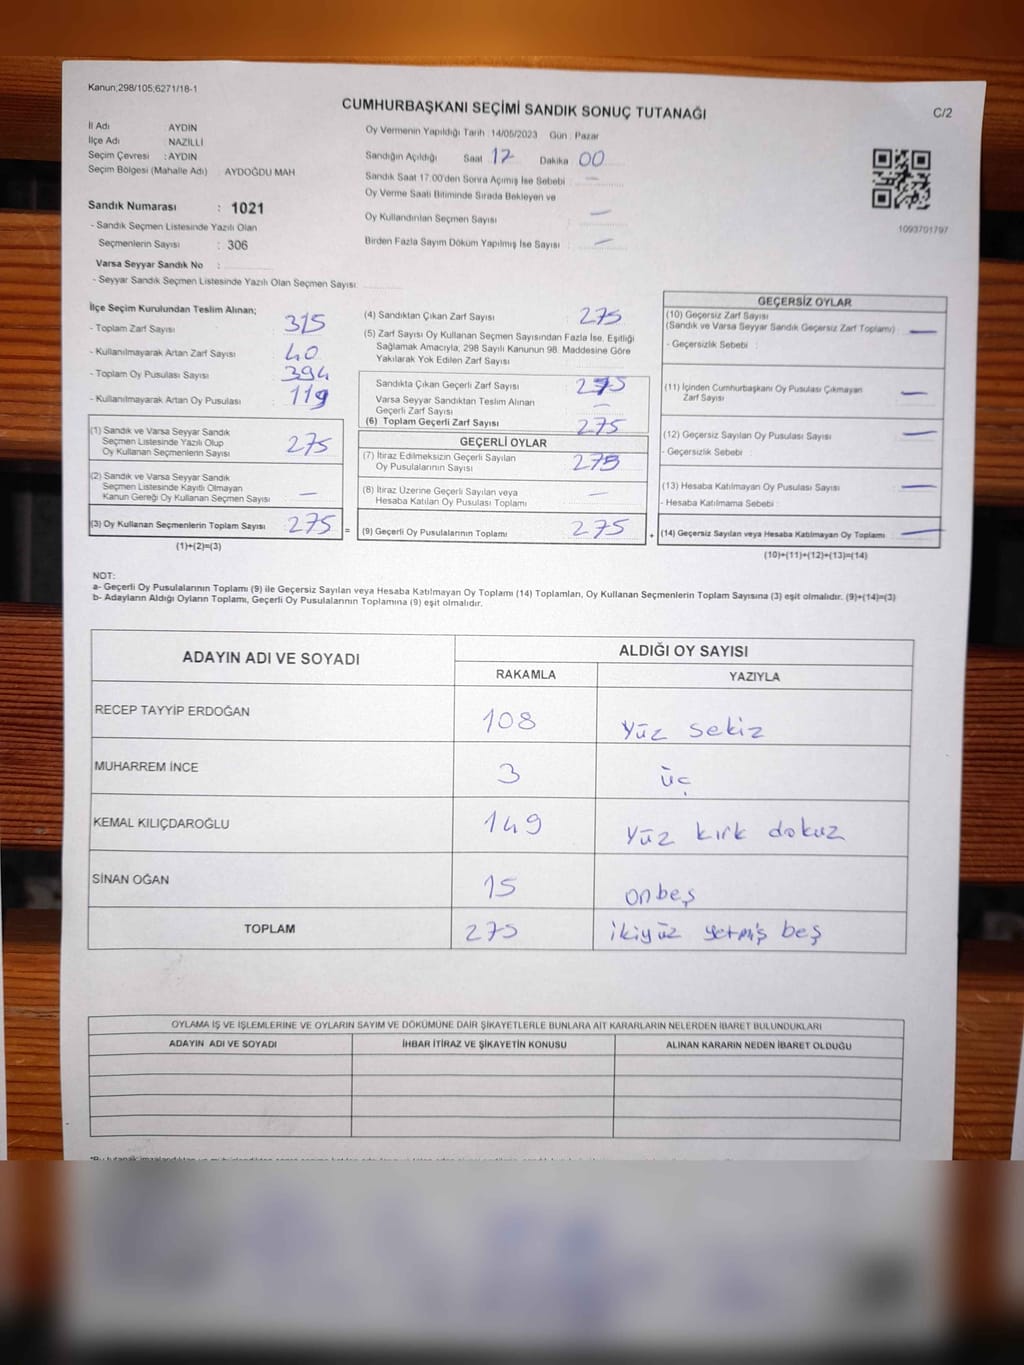 Kanun;298/105;6271/18-1
CUMHURBAŞKANI SEÇİMİ SANDIK SONUÇ TUTANAĞI
C/2
İl Adı AYDIN
İlçe Adı NAZİLLİ
Seçim Çevresi : AYDIN
Seçim Bölgesi (Mahalle Adı) : AYDOĞDU MAH
Oy Vermenin Yapıldığı Tarih : 14/05/2023 Gün : Pazar
Sandığın Açıldığı Saat 17 Dakika 00
Sandık Saat 17:00'den Sonra Açılmış İse Sebebi : —
Oy Verme Saati Bitiminde Sırada Bekleyen ve
Oy Kullandırılan Seçmen Sayısı : —
Birden Fazla Sayım Döküm Yapılmış İse Sayısı : —
1093701797
Sandık Numarası : 1021
- Sandık Seçmen Listesinde Yazılı Olan
Seçmenlerin Sayısı : 306
Varsa Seyyar Sandık No :
- Seyyar Sandık Seçmen Listesinde Yazılı Olan Seçmen Sayısı:
İlçe Seçim Kurulundan Teslim Alınan;
- Toplam Zarf Sayısı : 315
- Kullanılmayarak Artan Zarf Sayısı : 40
- Toplam Oy Pusulası Sayısı : 394
- Kullanılmayarak Artan Oy Pusulası : 119
(1) Sandık ve Varsa Seyyar Sandık
Seçmen Listesinde Yazılı Olup
Oy Kullanan Seçmenlerin Sayısı : 275
(2) Sandık ve Varsa Seyyar Sandık
Seçmen Listesinde Kayıtlı Olmayan
Kanun Gereği Oy Kullanan Seçmen Sayısı : —
(3) Oy Kullanan Seçmenlerin Toplam Sayısı : 275 =
(1)+(2)=(3)
(4) Sandıktan Çıkan Zarf Sayısı : 275
(5) Zarf Sayısı Oy Kullanan Seçmen Sayısından Fazla İse, Eşitliği
Sağlamak Amacıyla, 298 Sayılı Kanunun 98. Maddesine Göre
Yakılarak Yok Edilen Zarf Sayısı :
Sandıkta Çıkan Geçerli Zarf Sayısı : 275
Varsa Seyyar Sandıktan Teslim Alınan
Geçerli Zarf Sayısı : —
(6) Toplam Geçerli Zarf Sayısı : 275
GEÇERLİ OYLAR
(7) İtiraz Edilmeksizin Geçerli Sayılan
Oy Pusulalarının Sayısı : 275
(8) İtiraz Üzerine Geçerli Sayılan veya
Hesaba Katılan Oy Pusulası Toplamı : —
(9) Geçerli Oy Pusulalarının Toplamı : 275 +
GEÇERSİZ OYLAR
(10) Geçersiz Zarf Sayısı
(Sandık ve Varsa Seyyar Sandık Geçersiz Zarf Toplamı) : —
- Geçersizlik Sebebi :
(11) İçinden Cumhurbaşkanı Oy Pusulası Çıkmayan
Zarf Sayısı : —
(12) Geçersiz Sayılan Oy Pusulası Sayısı : —
- Geçersizlik Sebebi :
(13) Hesaba Katılmayan Oy Pusulası Sayısı : —
- Hesaba Katılmama Sebebi :
(14) Geçersiz Sayılan veya Hesaba Katılmayan Oy Toplamı : —
(10)+(11)+(12)+(13)=(14)
NOT:
a- Geçerli Oy Pusulalarının Toplamı (9) ile Geçersiz Sayılan veya Hesaba Katılmayan Oy Toplamı (14) Toplamları, Oy Kullanan Seçmenlerin Toplam Sayısına (3) eşit olmalıdır. (9)+(14)=(3)
b- Adayların Aldığı Oyların Toplamı, Geçerli Oy Pusulalarının Toplamına (9) eşit olmalıdır.
ADAYIN ADI VE SOYADI
ALDIĞI OY SAYISI
RAKAMLA YAZIYLA
RECEP TAYYİP ERDOĞAN 108 Yüz sekiz
MUHARREM İNCE 3 üç
KEMAL KILIÇDAROĞLU 149 Yüz kırk dokuz
SİNAN OĞAN 15 onbeş
TOPLAM 275 ikiyüz yetmiş beş
OYLAMA İŞ VE İŞLEMLERİNE VE OYLARIN SAYIM VE DÖKÜMÜNE DAİR ŞİKAYETLERLE BUNLARA AİT KARARLARIN NELERDEN İBARET BULUNDUKLARI
ADAYIN ADI VE SOYADI İHBAR İTİRAZ VE ŞİKAYETİN KONUSU ALINAN KARARIN NEDEN İBARET OLDUĞU